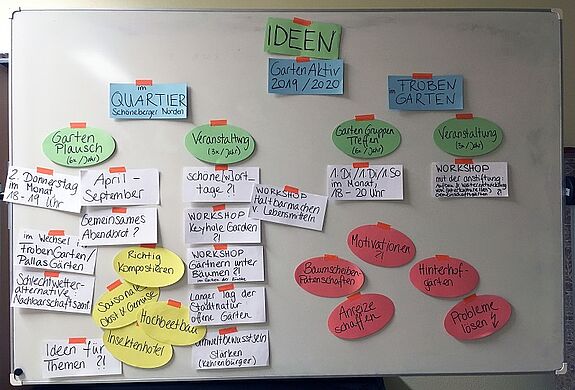 IDEEN
GartenAktiv
2019/2020
im
QUARTIER
Schöneberger Norden
im FROBEN
GARTEN
Garten
Plausch
(6x/Jahr)
2. Donnerstag
im Monat,
18-19 Uhr
April -
September
Gemeinsames
Abendbrot?
im Wechsel:
FrobenGarten/
PallasGärten
Schlechtwetter-
alternative
Nachbarschaftszent.
Richtig
Kompostieren
Saisonale
Obst & Gemüse
Hochbeetbau
Insektenhotel
Ideen für
Themen ?!
Veranstaltung
(3x/Jahr)
schöne[w]ort_
tage ?!
WORKSHOP
Haltbarmachen
v. Lebensmitteln
WORKSHOP
Keyhole Garden
?!
WORKSHOP
Gärtnern unter
Bäumen ?!
Langer Tag der
StadtNatur
offene Gärten
Umweltbewusstsein
Stärken
(Kehrenbürger)
Garten Gruppen
Treffen
(6x/Jahr)
1. Di / 1. Di / 1. So
im Monat,
18 - 20 Uhr
Veranstaltung
(3x/Jahr)
WORKSHOP
mit der anstiftung:
Motivationen ?!
Baumscheiben-
Patenschaften
Hinterhof-
gärten
Anreize
schaffen
Probleme
lösen